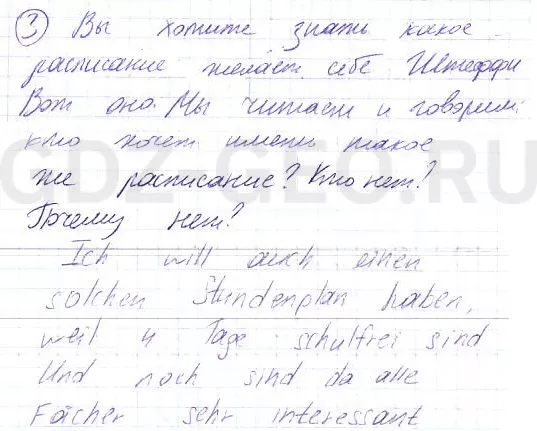 ③ Вы хотите знать какое
расписание желает себе Штеффи
Вот оно. Мы читаем и говорим:
кто хочет иметь такое
же расписание? Кто нет?
Почему нет?
Ich will auch einen
solchen Stundenplan haben,
weil 4 Tage schulfrei sind
Und noch sind da alle
Fächer sehr interessant
GDZ-GEO.RU